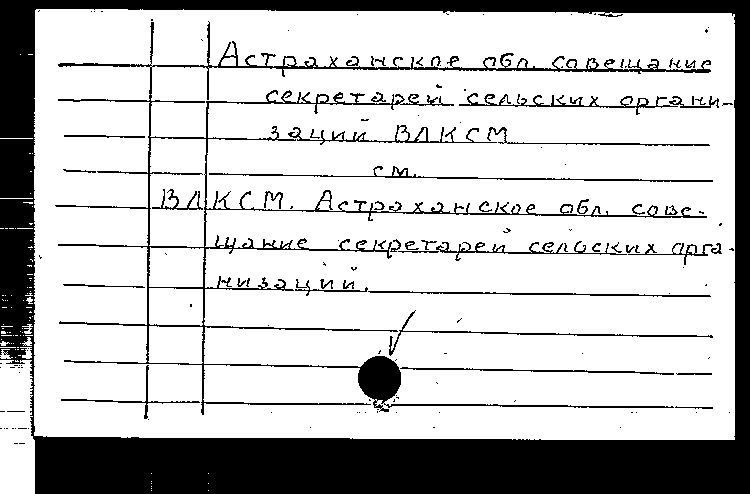 Астраханское обл. совещание
секретарей сельских органи-
заций ВЛКСМ
см.
ВЛКСМ. Астраханское обл. сове-
щание секретарей сельских орга-
низаций.